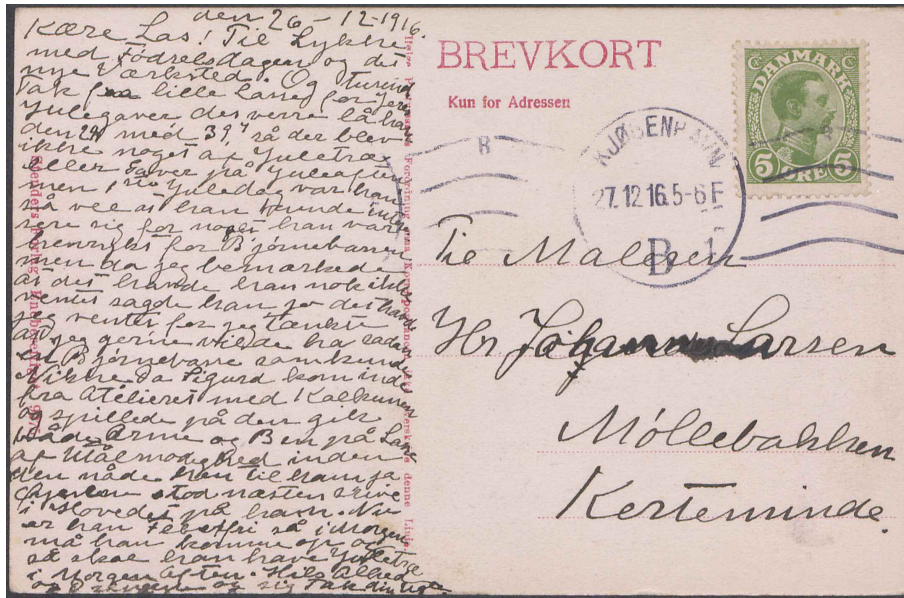 den 26-12-1916.
Kære Las! Til Lykke
med Fødselsdagen og det
nye Værksted. Og tusind
Tak fra lille Lasse for Jeres
Julegaver desverre lå han
den 24 med 39,4 så der blev
ikke noget af Juletræ
eller Gaver på Juleaften
men 1ste Juledag var han
så vel at han kunde
sig for noget han var
henrykt for Bjørnebanen
men da jeg bemærkede
at det havde han nok ikke
ventet sagde han jo det havde
jeg ventet for jeg tænkte
at jeg gerne vilde ha sådan
en Bjørnebane som kunde
Nikke da Sigurd kom ind
fra Atelieret med Kalkunen
og spillede på den gik
både Arme og Ben på Lasse
af Utålmodighed inden
den nåde hen til ham ja
Øjnene stod næsten
i Hovedet på ham. Nu
er han Feberfri så i Morgen
må han komme op og
så skal han have Juletræ
i Morgen Aften. Hils Alhed
og Drengene og sig Tak
BREVKORT
Kun for Adressen
DANMARK
5 ØRE 5
KJØBENHAVN
27.12.16.5-6 F
B
Til Maleren
Hr Johannes Larsen
Møllebakken
Kerteminde.
denne Linie